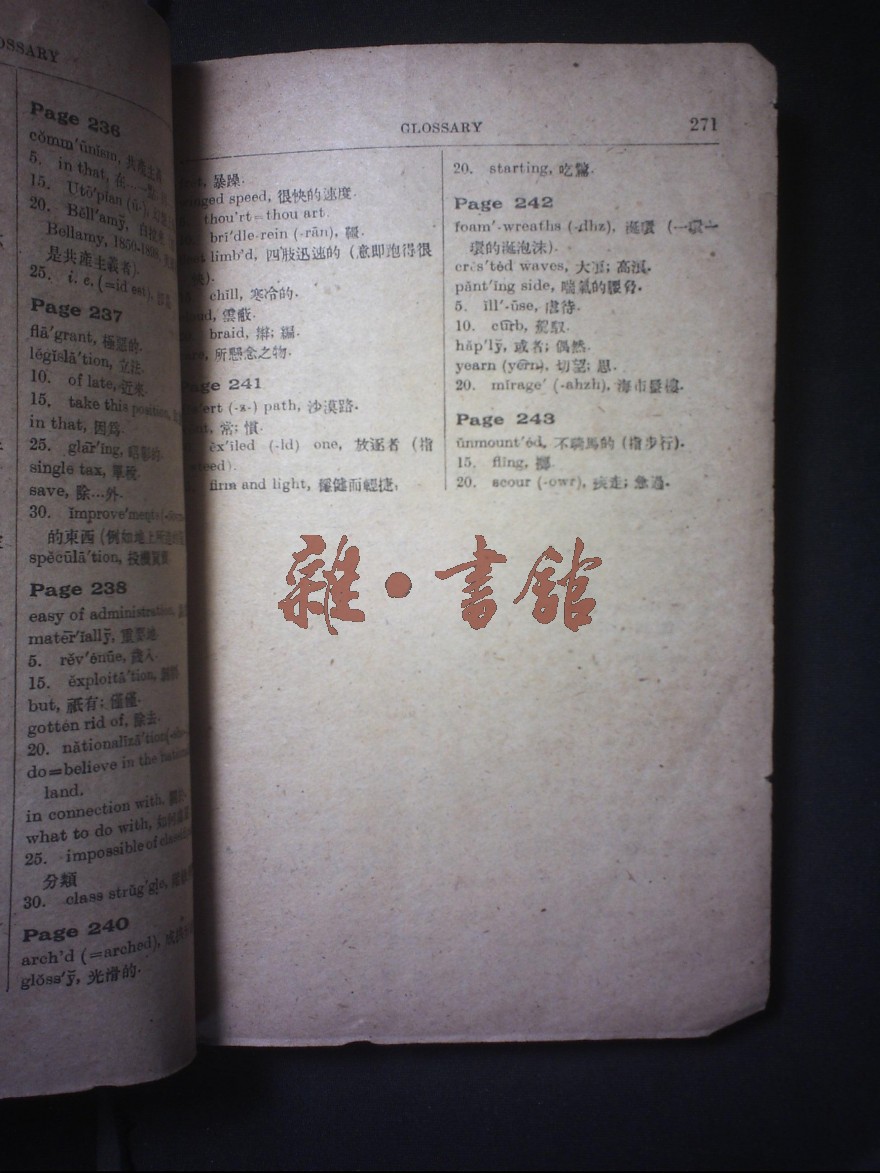 GLOSSARY
Page 236
cŏmm'ūnĭsm, 共產主義
5. in that, 在
15. Utō'pĭan (ū-),
20. Bĕll'amў,
Bellamy, 1850-1898,
是共產主義者).
25. i. e, (=id est),
Page 237
flā'grant, 極惡的.
lĕgĭslā'tion, 立法.
10. of late, 近來.
15. take this position,
in that, 因爲
25. glār'ing, 昭彰的.
single tax, 單稅.
save, 除…外.
30. ĭmprove'ments
的東西 (例如地上所
spĕcūlā'tion, 投機買賣.
Page 238
easy of administration,
matēr'ially̆, 重要地.
5. rĕv'énūe, 歲入.
15. ĕxploitā'tion,
but, 祇有; 僅僅.
gottén rid of, 除去.
20. nătionalĭzā'tion
do=believe in the
land.
in connection with,
what to do with, 如何
25. impossible of
分類
30. class strŭg'gle,
Page 240
arch'd (=arched),
glŏss'ў, 光滑的.
GLOSSARY 271
暴躁.
winged speed, 很快的速度.
thou'rt=thou art.
bri'dle-rein (-rān), 韁.
limb'd, 四肢迅速的 (意卽跑得很
快).
chĭll, 寒冷的.
braid, 辮; 編.
所懸念之物.
Page 241
(-z-) path, 沙漠路.
常; 慣.
ĕx'iled (-ld) one, 放逐者 (指
steed).
firm and light, 穩健而輕捷.
20. starting, 吃驚.
Page 242
foam'-wreaths (-dhz), 涎環 (一環一
環的涎泡沫).
crĕs'tĕd waves, 大
pănt'ing side, 喘氣的腰脅.
5. ĭll'-ūse, 虐待.
10. cûrb, 駕馭.
hăp'lў, 或者; 偶然.
yearn (yẽrn), 切望; 思.
20. mĭrage' (-ahzh), 海市蜃樓.
Page 243
ŭnmount'ĕd, 不騎馬的 (指步行).
15. flĭng, 擲.
20. scour (-owr), 疾走; 急過.
雜·書館